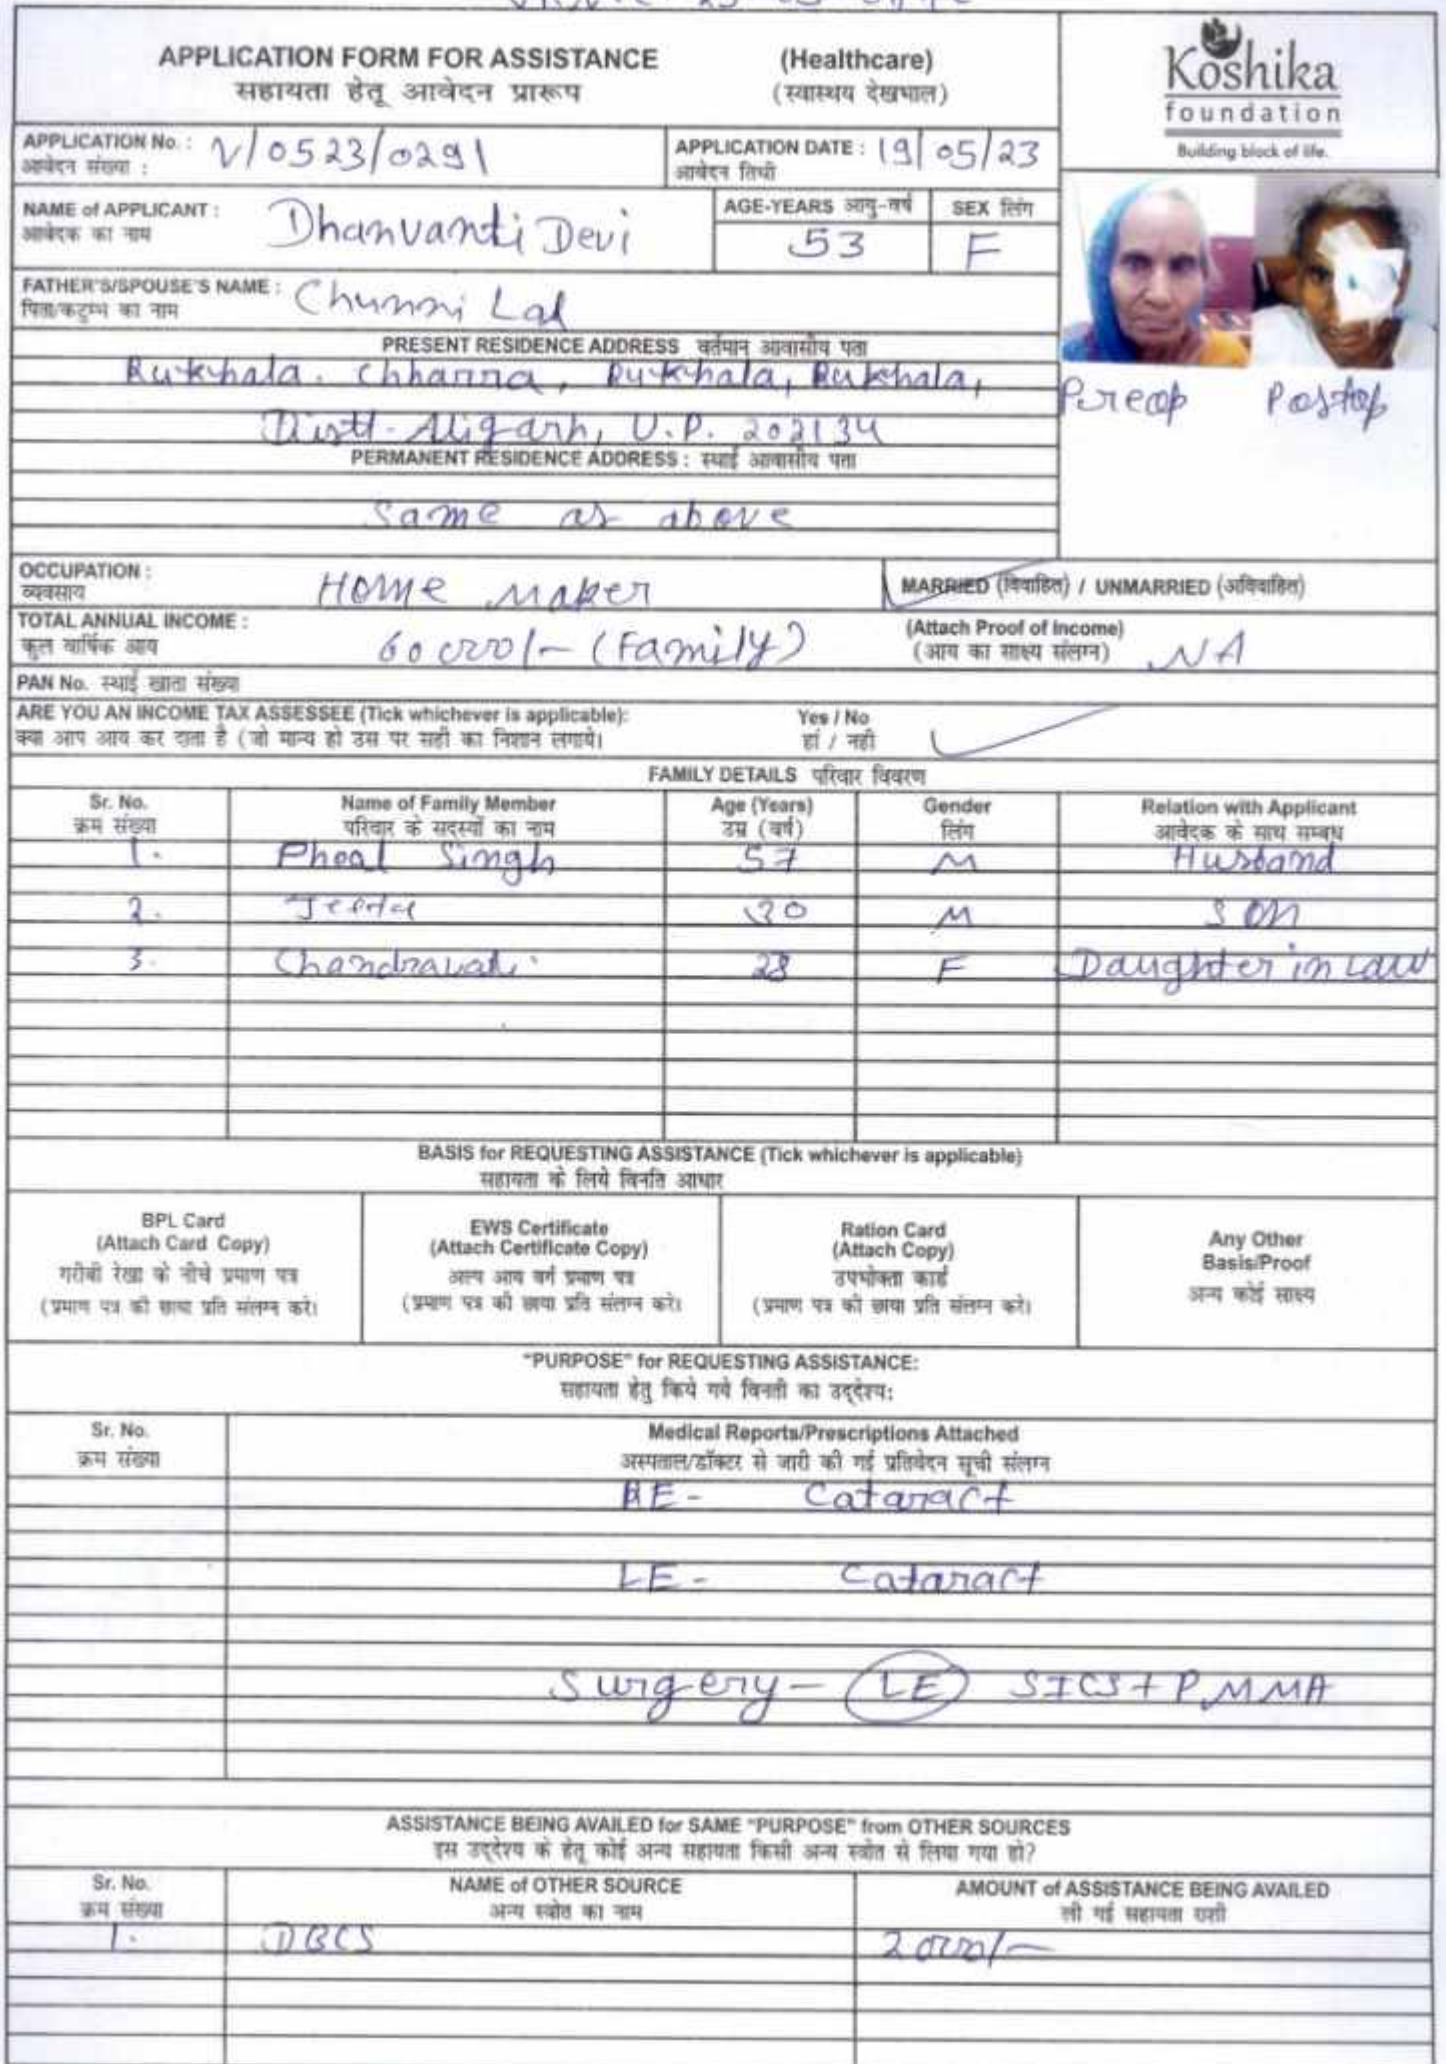 APPLICATION FORM FOR ASSISTANCE (Healthcare)
सहायता हेतू आवेदन प्रारूप (स्वास्थय देखभाल)
Koshika
foundation
Building block of life.
APPLICATION No. : V/0523/0291 APPLICATION DATE : 19/05/23
आवेदन संख्या : आवेदन तिथी
NAME of APPLICANT : Dhanvanti Devi AGE-YEARS आयु-वर्ष 53 SEX लिंग F
आवेदक का नाम
FATHER'S/SPOUSE'S NAME : Chunni Lal
पिता/कटुम्भ का नाम
PRESENT RESIDENCE ADDRESS वर्तमान आवासीय पता
Rukhala. Chharra, Rukhala, Rukhala,
Distt-Aligarh, U.P. 202134
Preop Postop
PERMANENT RESIDENCE ADDRESS : स्थाई आवासीय पता
Same as above
OCCUPATION : Home Maker MARRIED (विवाहित) / UNMARRIED (अविवाहित)
व्यवसाय
TOTAL ANNUAL INCOME : 60000/- (Family) (Attach Proof of Income) NA
कुल वार्षिक आय (आय का साक्ष्य संलग्न)
PAN No. स्थाई खाता संख्या
ARE YOU AN INCOME TAX ASSESSEE (Tick whichever is applicable): Yes / No
क्या आप आय कर दाता है (जो मान्य हो उस पर सही का निशान लगाये। हां / नही
FAMILY DETAILS परिवार विवरण
Sr. No. Name of Family Member Age (Years) Gender Relation with Applicant
क्रम संख्या परिवार के सदस्यों का नाम उम्र (वर्ष) लिंग आवेदक के साथ सम्बध
1. Phoal Singh 57 M Husband
2. 30 M Son
3. Chandravati 28 F Daughter in Law
BASIS for REQUESTING ASSISTANCE (Tick whichever is applicable)
सहायता के लिये विनति आधार
BPL Card
(Attach Card Copy)
गरीबी रेखा के नीचे प्रमाण पत्र
(प्रमाण पत्र की छाया प्रति संलग्न करे।
EWS Certificate
(Attach Certificate Copy)
अल्प आय वर्ग प्रमाण पत्र
(प्रमाण पत्र की छाया प्रति संलग्न करे।
Ration Card
(Attach Copy)
उपभोक्ता कार्ड
(प्रमाण पत्र की छाया प्रति संलग्न करे।
Any Other
Basis/Proof
अन्य कोई साक्ष्य
"PURPOSE" for REQUESTING ASSISTANCE:
सहायता हेतु किये गये विनती का उद्देश्य:
Sr. No. Medical Reports/Prescriptions Attached
क्रम संख्या अस्पताल/डॉक्टर से जारी की गई प्रतिवेदन सूची संलग्न
RE- Cataract
LE- Cataract
Surgery- LE SICS+PMMA
ASSISTANCE BEING AVAILED for SAME "PURPOSE" from OTHER SOURCES
इस उद्देश्य के हेतू कोई अन्य सहायता किसी अन्य स्त्रोत से लिया गया हो?
Sr. No. NAME of OTHER SOURCE AMOUNT of ASSISTANCE BEING AVAILED
क्रम संख्या अन्य स्त्रोत का नाम ली गई सहायता राशी
1. DBCS 2000/-